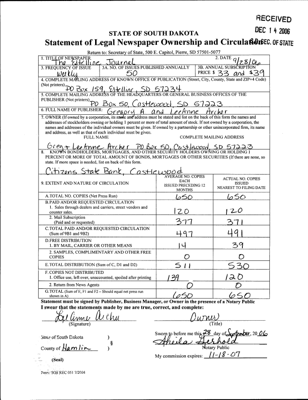 RECEIVED
DEC 14 2006
S.D. SEC. OF STATE
STATE OF SOUTH DAKOTA
Statement of Legal Newspaper Ownership and Circulation
Return to: Secretary of State, 500 E. Capitol, Pierre, SD 57501-5077
1. TITLE OF NEWSPAPER
The Estelline Journal
2. DATE
9/28/06
3. FREQUENCY OF ISSUE
Weekly
3A. NO. OF ISSUES PUBLISHED ANNUALLY
50
3B. ANNUAL SUBSCRIPTION
PRICE $ 33 and $39
4. COMPLETE MAILING ADDRESS OF KNOWN OFFICE OF PUBLICATION (Street, City, County, State and ZIP+4 Code)
(Not printers)
PO Box 159, Estelline, SD 57234
5. COMPLETE MAILING ADDRESS OF THE HEADQUARTERS OF GENERAL BUSINESS OFFICES OF THE
PUBLISHER (Not printer)
PO Box 50, Castlewood, SD 57223
6. FULL NAME OF PUBLISHER:
Gregory A. and LeAnne Archer
7. OWNER (If owned by a corporation, its name and address must be stated and list on the back of this form the names and
addresses of stockholders owning or holding 1 percent or more of total amount of stock. If not owned by a corporation, the
names and addresses of the individual owners must be given. If owned by a partnership or other unincorporated firm, its name
and address, as well as that of each individual must be given.
FULL NAME
COMPLETE MAILING ADDRESS
Greg & LeAnne Archer PO Box 50, Castlewood, SD 57223
8. KNOWN BONDHOLDERS, MORTGAGES, AND OTHER SECURITY HOLDERS OWNING OR HOLDING 1
PERCENT OR MORE OF TOTAL AMOUNT OF BONDS, MORTGAGES OR OTHER SECURITIES (If there are none, so
state. If more space is needed, list on the back of this form.)
Citizens State Bank, Castlewood
9. EXTENT AND NATURE OF CIRCULATION
AVERAGE NO. COPIES
EACH
ISSUED PRECEDING 12
MONTHS
ACTUAL NO. COPIES
ISSUED
NEAREST TO FILING DATE
A. TOTAL NO. COPIES (Net Press Run)
650
650
B. PAID AND/OR REQUESTED CIRCULATION
1. Sales through dealers and carriers, street vendors and
counter sales.
120
120
2. Mail Subscription
(Paid and or requested)
377
371
C. TOTAL PAID AND/OR REQUESTED CIRCULATION
(Sum of 9B1 and 9B2)
497
491
D. FREE DISTRIBUTION
1. BY MAIL, CARRIER OR OTHER MEANS
14
39
2. SAMPLES, COMPLIMENTARY AND OTHER FREE
COPIES
0
0
E. TOTAL DISTRIBUTION (Sum of C, D1 and D2)
511
530
F. COPIES NOT DISTRIBUTED
1. Office use, left over, unaccounted, spoiled after printing
139
120
2. Return from News Agents
0
0
G. TOTAL (Sum of E, F1 and F2 - Should equal net press run
shown in A)
650
650
Statement must be signed by Publisher, Business Manager, or Owner in the presence of a Notary Public
I swear that the statements made by me are true, correct, and complete:
LeAnne Archer
(Signature)
Owner
(Title)
State of South Dakota )
County of Hamlin )
(Seal)
Sworn to before me this 28 day of September, 2006
Sheila Gerhold
Notary Public
My commission expires 11-18-07